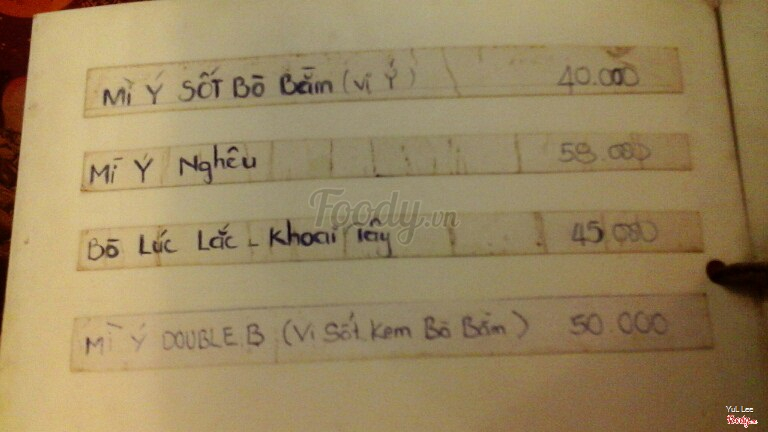 Mì Ý SỐT BÒ Bằm (Vị Ý) 40.000
Mì Ý Nghêu 58.000
Foody.vn
Bò Lúc Lắc - Khoai Tây 45.000
Mì Ý DOUBLE B (Vị Sốt Kem Bò Bằm) 50.000
YuL Lee
Foody.vn